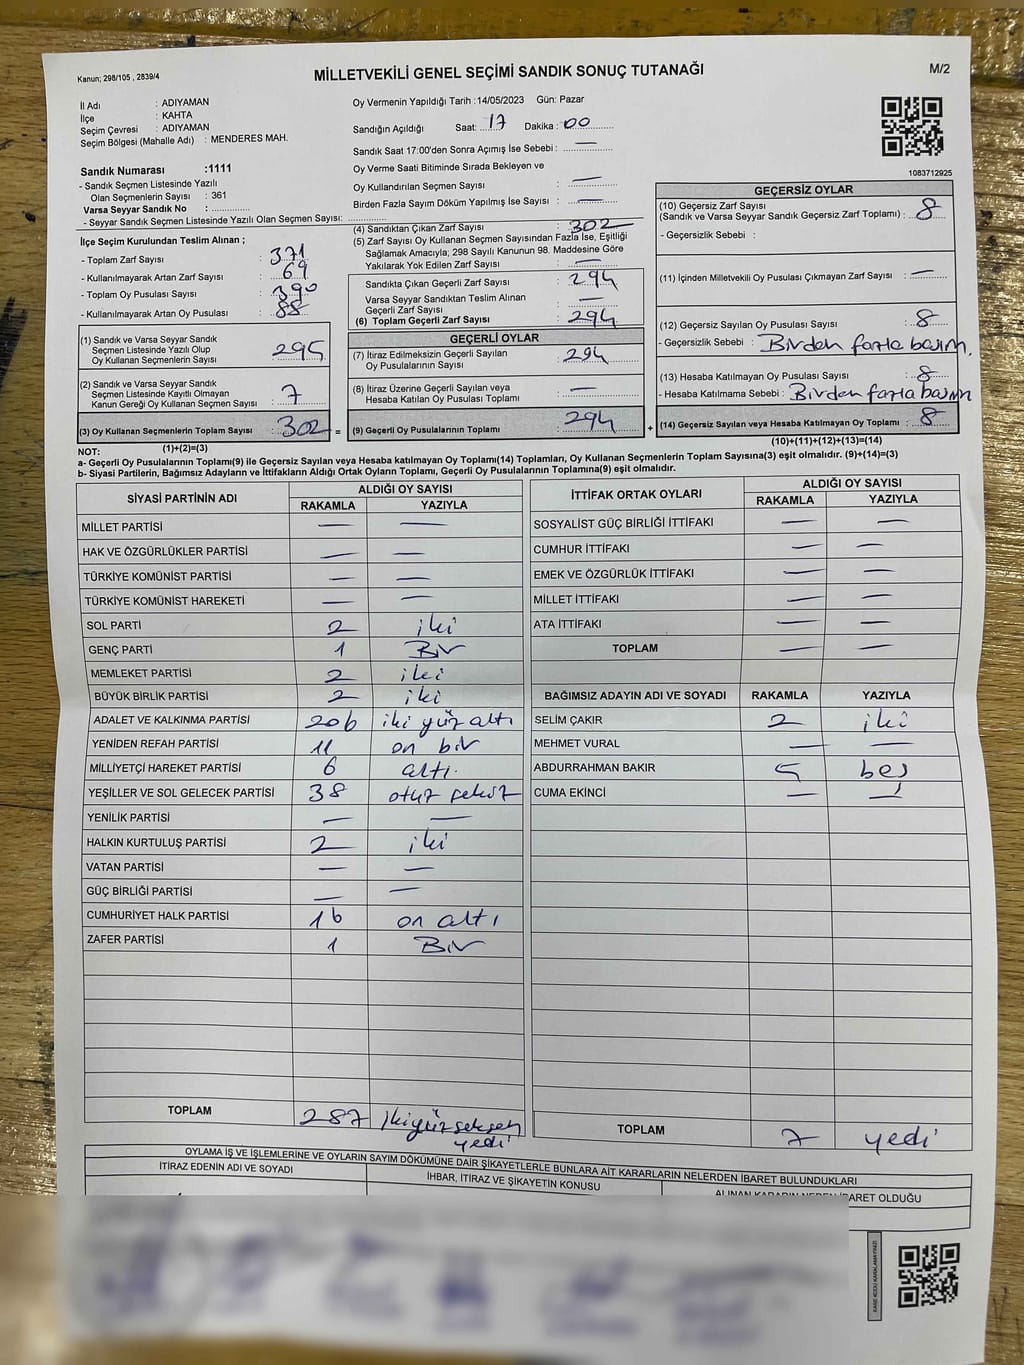 Kanun; 298/105 , 2839/4
MİLLETVEKİLİ GENEL SEÇİMİ SANDIK SONUÇ TUTANAĞI
M/2
İl Adı : ADIYAMAN
İlçe : KAHTA
Seçim Çevresi : ADIYAMAN
Seçim Bölgesi (Mahalle Adı) : MENDERES MAH.
Sandık Numarası :1111
- Sandık Seçmen Listesinde Yazılı
Olan Seçmenlerin Sayısı : 361
Varsa Seyyar Sandık No : ..............
- Seyyar Sandık Seçmen Listesinde Yazılı Olan Seçmen Sayısı: ..............
Oy Vermenin Yapıldığı Tarih :14/05/2023 Gün: Pazar
Sandığın Açıldığı Saat: 17 Dakika : 00
Sandık Saat 17:00'den Sonra Açımış İse Sebebi : —
Oy Verme Saati Bitiminde Sırada Bekleyen ve
Oy Kullandırılan Seçmen Sayısı : —
Birden Fazla Sayım Döküm Yapılmış İse Sayısı : —
1083712925
İlçe Seçim Kurulundan Teslim Alınan ;
- Toplam Zarf Sayısı : 371
- Kullanılmayarak Artan Zarf Sayısı : 69
- Toplam Oy Pusulası Sayısı : 390
- Kullanılmayarak Artan Oy Pusulası : 88
(1) Sandık ve Varsa Seyyar Sandık
Seçmen Listesinde Yazılı Olup
Oy Kullanan Seçmenlerin Sayısı : 295
(2) Sandık ve Varsa Seyyar Sandık
Seçmen Listesinde Kayıtlı Olmayan
Kanun Gereği Oy Kullanan Seçmen Sayısı : 7
(3) Oy Kullanan Seçmenlerin Toplam Sayısı : 302 =
(1)+(2)=(3)
(4) Sandıktan Çıkan Zarf Sayısı : 302
(5) Zarf Sayısı Oy Kullanan Seçmen Sayısından Fazla İse, Eşitliği
Sağlamak Amacıyla; 298 Sayılı Kanunun 98. Maddesine Göre
Yakılarak Yok Edilen Zarf Sayısı : —
Sandıkta Çıkan Geçerli Zarf Sayısı : 294
Varsa Seyyar Sandıktan Teslim Alınan
Geçerli Zarf Sayısı : —
(6) Toplam Geçerli Zarf Sayısı : 294
GEÇERLİ OYLAR
(7) İtiraz Edilmeksizin Geçerli Sayılan
Oy Pusulalarının Sayısı : 294
(8) İtiraz Üzerine Geçerli Sayılan veya
Hesaba Katılan Oy Pusulası Toplamı : —
(9) Geçerli Oy Pusulalarının Toplamı : 294 +
GEÇERSİZ OYLAR
(10) Geçersiz Zarf Sayısı
(Sandık ve Varsa Seyyar Sandık Geçersiz Zarf Toplamı) : 8
- Geçersizlik Sebebi :
(11) İçinden Milletvekili Oy Pusulası Çıkmayan Zarf Sayısı : —
(12) Geçersiz Sayılan Oy Pusulası Sayısı : 8
- Geçersizlik Sebebi : Birden fazla basım.
(13) Hesaba Katılmayan Oy Pusulası Sayısı : 8
- Hesaba Katılmama Sebebi : Birden fazla basım
(14) Geçersiz Sayılan veya Hesaba Katılmayan Oy Toplamı : 8
(10)+(11)+(12)+(13)=(14)
NOT:
a- Geçerli Oy Pusulasının Toplamı(9) ile Geçersiz Sayılan veya Hesaba katılmayan Oy Toplamı(14) Toplamları, Oy Kullanan Seçmenlerin Toplam Sayısına(3) eşit olmalıdır. (9)+(14)=(3)
b- Siyasi Partilerin, Bağımsız Adayların ve İttifakların Aldığı Ortak Oyların Toplamı, Geçerli Oy Pusulalarının Toplamına(9) eşit olmalıdır.
SİYASİ PARTİNİN ADI ALDIĞI OY SAYISI
RAKAMLA YAZIYLA
MİLLET PARTİSİ — —
HAK VE ÖZGÜRLÜKLER PARTİSİ — —
TÜRKİYE KOMÜNİST PARTİSİ — —
TÜRKİYE KOMÜNİST HAREKETİ — —
SOL PARTİ 2 iki
GENÇ PARTİ 1 Bir
MEMLEKET PARTİSİ 2 iki
BÜYÜK BİRLİK PARTİSİ 2 iki
ADALET VE KALKINMA PARTİSİ 206 iki yüz altı
YENİDEN REFAH PARTİSİ 11 on bir
MİLLİYETÇİ HAREKET PARTİSİ 6 altı.
YEŞİLLER VE SOL GELECEK PARTİSİ 38 otuz sekiz
YENİLİK PARTİSİ — —
HALKIN KURTULUŞ PARTİSİ 2 iki
VATAN PARTİSİ — —
GÜÇ BİRLİĞİ PARTİSİ — —
CUMHURİYET HALK PARTİSİ 16 on altı
ZAFER PARTİSİ 1 Bir
TOPLAM 287 ikiyüzseksen
yedi
İTTİFAK ORTAK OYLARI ALDIĞI OY SAYISI
RAKAMLA YAZIYLA
SOSYALİST GÜÇ BİRLİĞİ İTTİFAKI — —
CUMHUR İTTİFAKI — —
EMEK VE ÖZGÜRLÜK İTTİFAKI — —
MİLLET İTTİFAKI — —
ATA İTTİFAKI — —
TOPLAM — —
BAĞIMSIZ ADAYIN ADI VE SOYADI RAKAMLA YAZIYLA
SELİM ÇAKIR 2 iki
MEHMET VURAL — —
ABDURRAHMAN BAKIR 5 beş
CUMA EKİNCİ — —
TOPLAM 7 yedi
OYLAMA İŞ VE İŞLEMLERİNE VE OYLARIN SAYIM DÖKÜMÜNE DAİR ŞİKAYETLERLE BUNLARA AİT KARARLARIN NELERDEN İBARET BULUNDUKLARI
İTİRAZ EDENİN ADI VE SOYADI İHBAR, İTİRAZ VE ŞİKAYETİN KONUSU ALINAN KARARIN NEDEN İBARET OLDUĞU